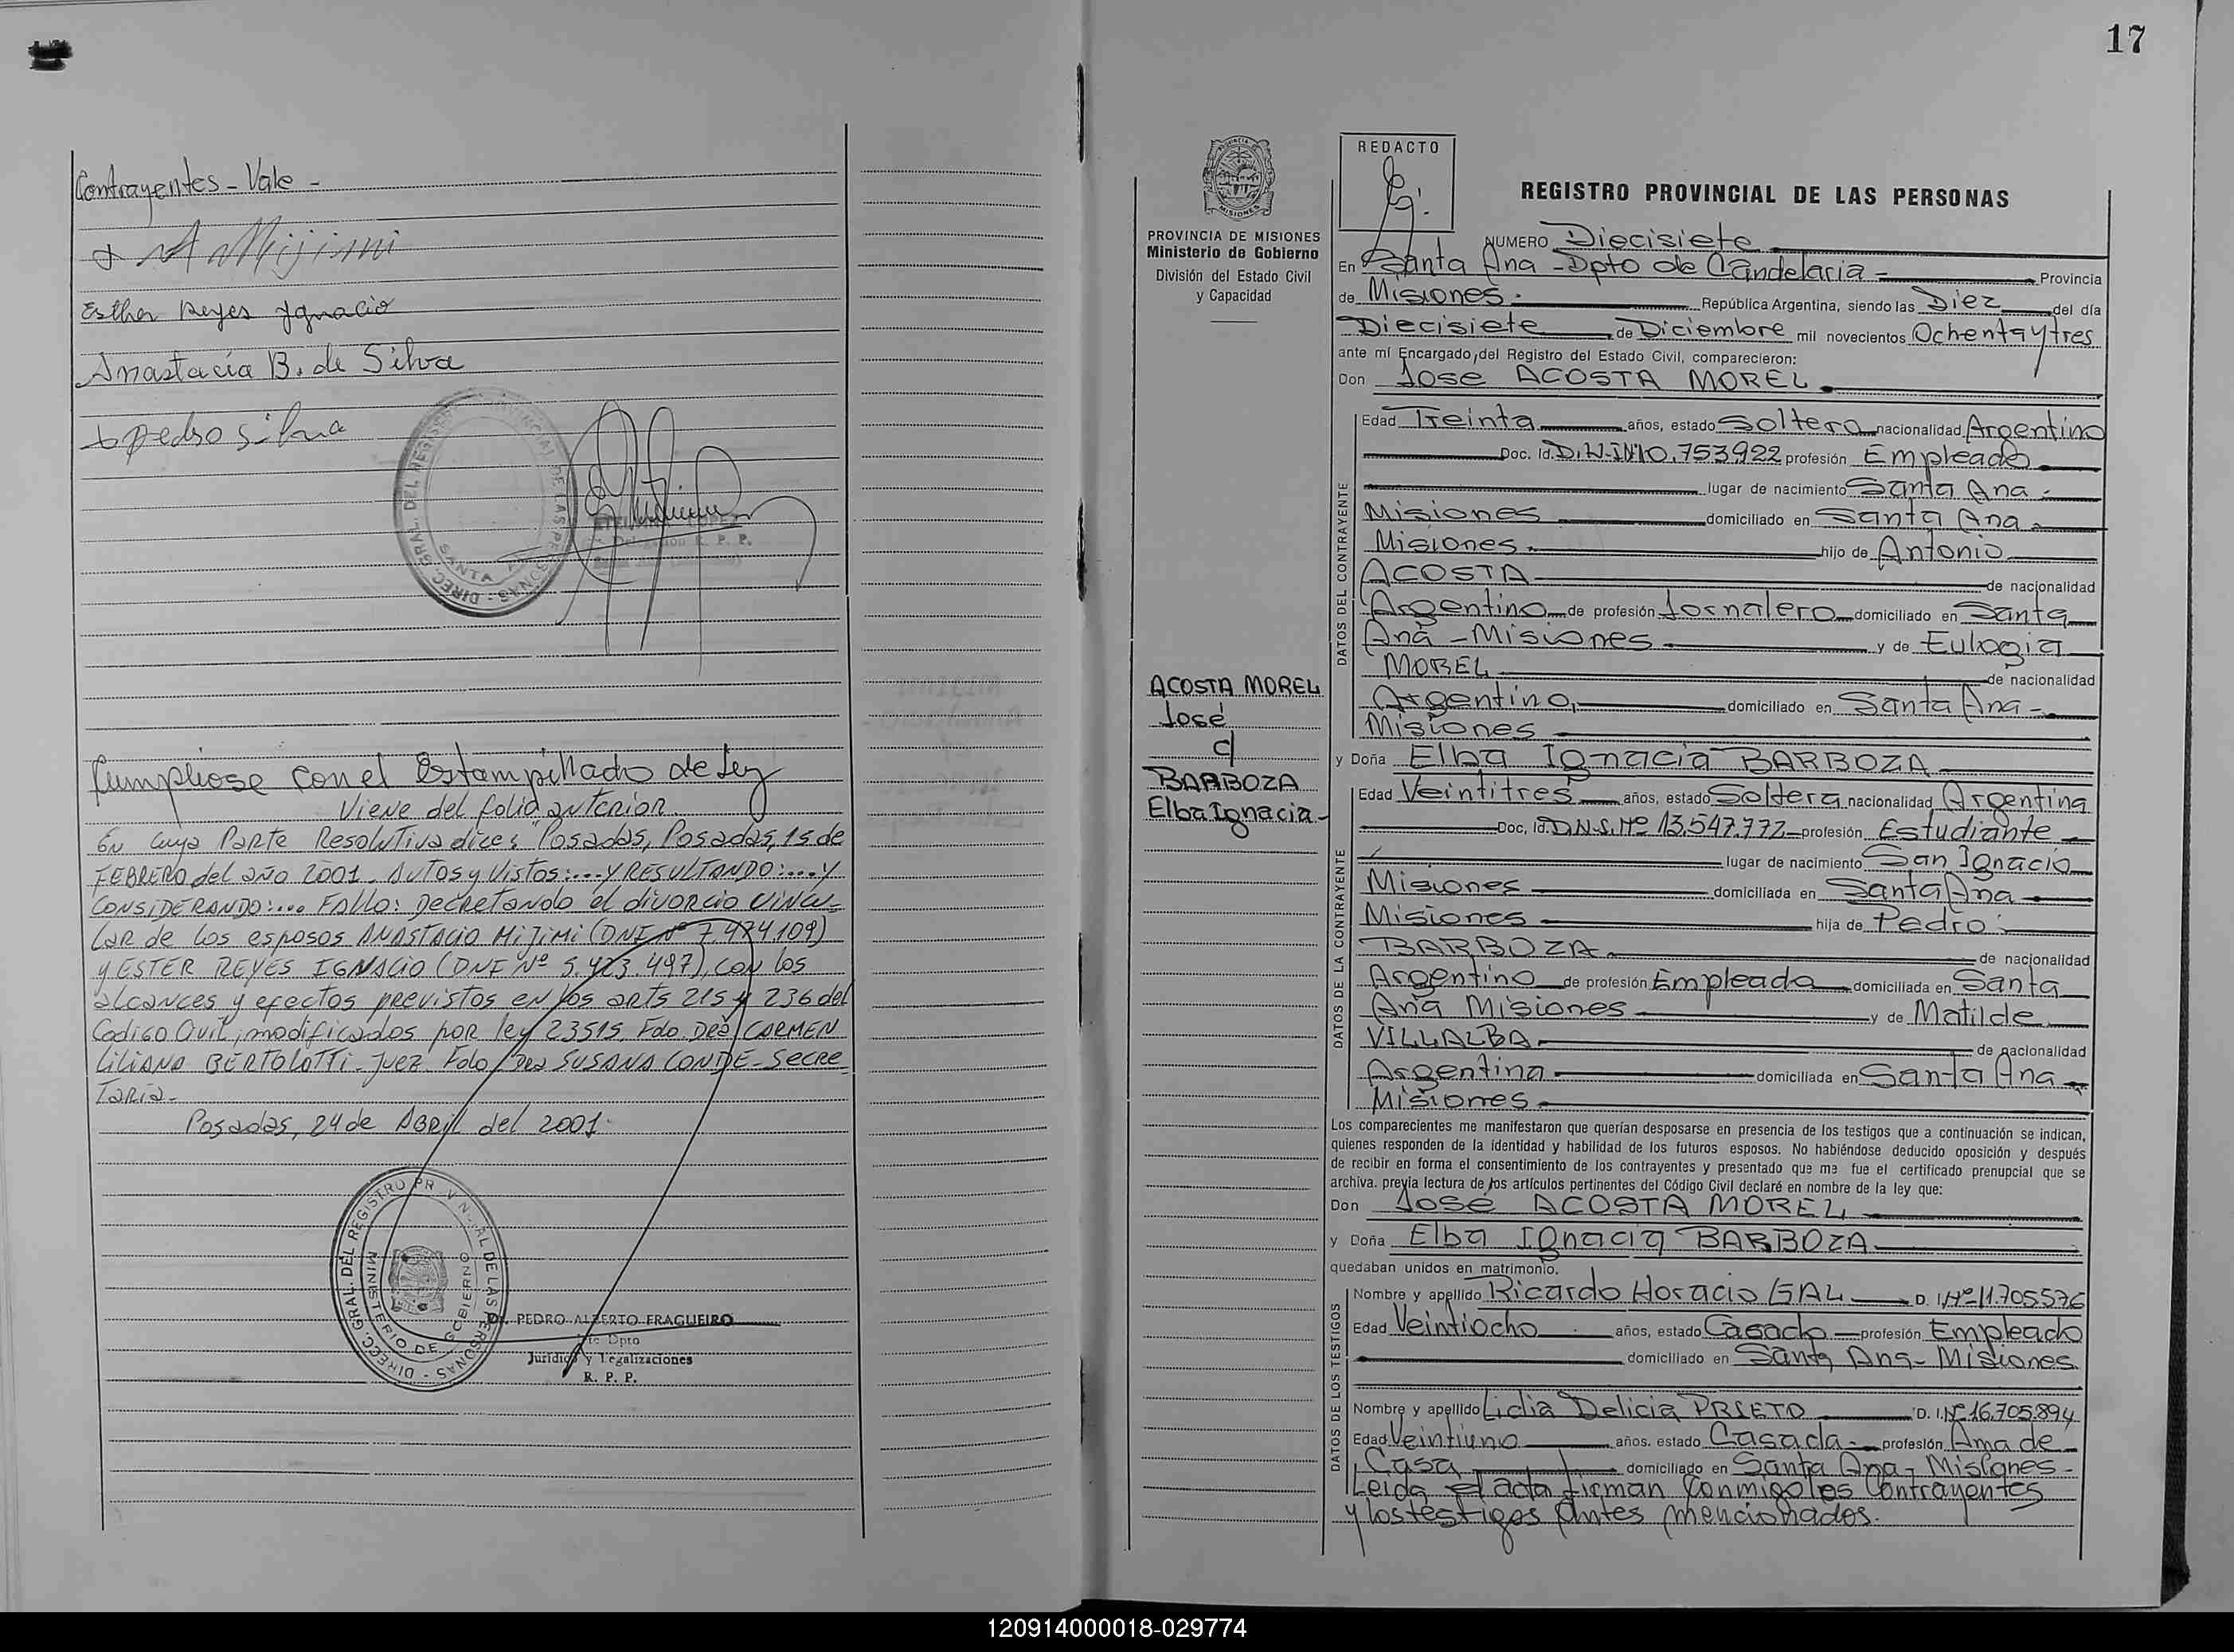 Contrayentes - Vale -
AMijimi
Esther Reyes Ygnacio
Anastacia B. de Silva
pedro silva
DIREC. GRAL. DEL REGISTRO PROVINCIAL DE LAS PERSONAS
SANTA
R. P. P.
Cumpliose con el Estampillado de Ley
Viene del folio anterior
En cuya Parte Resolutiva dice: "Posadas, Posadas, 15 de
FEBRERO del año 2001. Autos y Vistos:... y RESULTANDO:... y
CONSIDERANDO:... FAllo: Decretando el divorcio vincu-
lar de los esposos ANASTACIO MiJiMi (DNI Nº 7.474.109)
y ESTER REYES IGNACIO (DNI Nº 5.423.497), con los
alcances y efectos previstos en los arts 215 y 236 del
Codigo Civil, modificados por ley 23515. Fdo. Dra CARMEN
LILIANA BERTOLOTTI - Juez. Fdo Dra SUSANA CONDE - Secre
Taria -
Posadas, 24 de ABRil del 2001.
DIREC. GRAL. DEL REGISTRO PROVINCIAL DE LAS PERSONAS
MINISTERIO DE GOBIERNO
Dr. PEDRO ALBERTO FRAGUEIRO
Dpto
Jurídico y Legalizaciones
R. P. P.
17
REDACTO
MISIONES
REGISTRO PROVINCIAL DE LAS PERSONAS
PROVINCIA DE MISIONES
Ministerio de Gobierno
División del Estado Civil
y Capacidad
NUMERO Diecisiete
En Santa Ana - Dpto de Candelaria - Provincia
de Misiones - República Argentina, siendo las Diez del día
Diecisiete de Diciembre mil novecientos Ochentaytres
ante mí Encargado del Registro del Estado Civil, comparecieron:
Don Jose ACOSTA MOREL
DATOS DEL CONTRAYENTE
Edad Treinta años, estado Soltero nacionalidad Argentino
Doc. Id. 10.753922 profesión Empleado
lugar de nacimiento Santa Ana -
Misiones domiciliado en Santa Ana
Misiones hijo de Antonio
ACOSTA de nacionalidad
Argentino de profesión Jornalero domiciliado en Santa
Ana - Misiones y de Eulogia
MOREL de nacionalidad
Argentino, domiciliado en Santa Ana -
Misiones
ACOSTA MOREL
José
c/
BARBOZA
Elba Ignacia -
y Doña Elba Ignacia BARBOZA
DATOS DE LA CONTRAYENTE
Edad Veintitres años, estado Soltera nacionalidad Argentina
Doc. Id. Nº 13.547.772 profesión Estudiante
lugar de nacimiento San Ignacio
Misiones domiciliada en Santa Ana
Misiones hija de Pedro
BARBOZA de nacionalidad
Argentino de profesión Empleado domiciliada en Santa
Ana Misiones y de Matilde
VILLALBA de nacionalidad
Argentina domiciliada en Santa Ana
Misiones
Los comparecientes me manifestaron que querían desposarse en presencia de los testigos que a continuación se indican,
quienes responden de la identidad y habilidad de los futuros esposos. No habiéndose deducido oposición y después
de recibir en forma el consentimiento de los contrayentes y presentado que me fue el certificado prenupcial que se
archiva. previa lectura de los artículos pertinentes del Código Civil declaré en nombre de la ley que:
Don José ACOSTA MOREL
y Doña Elba Ignacia BARBOZA
quedaban unidos en matrimonio.
DATOS DE LOS TESTIGOS
Nombre y apellido Ricardo Horacio GAL D. I. Nº 11.705576
Edad Veintiocho años, estado Casado profesión Empleado
domiciliado en Santa Ana - Misiones
Nombre y apellido Lidia Delicia PRIETO D. I. Nº 16.705.894
Edad Veintiuno años. estado Casada profesión Ama de
Casa domiciliado en Santa Ana - Misiones -
Leida el acta firman Conmigo los Contrayentes
y los testigos Antes mencionados.
120914000018-029774